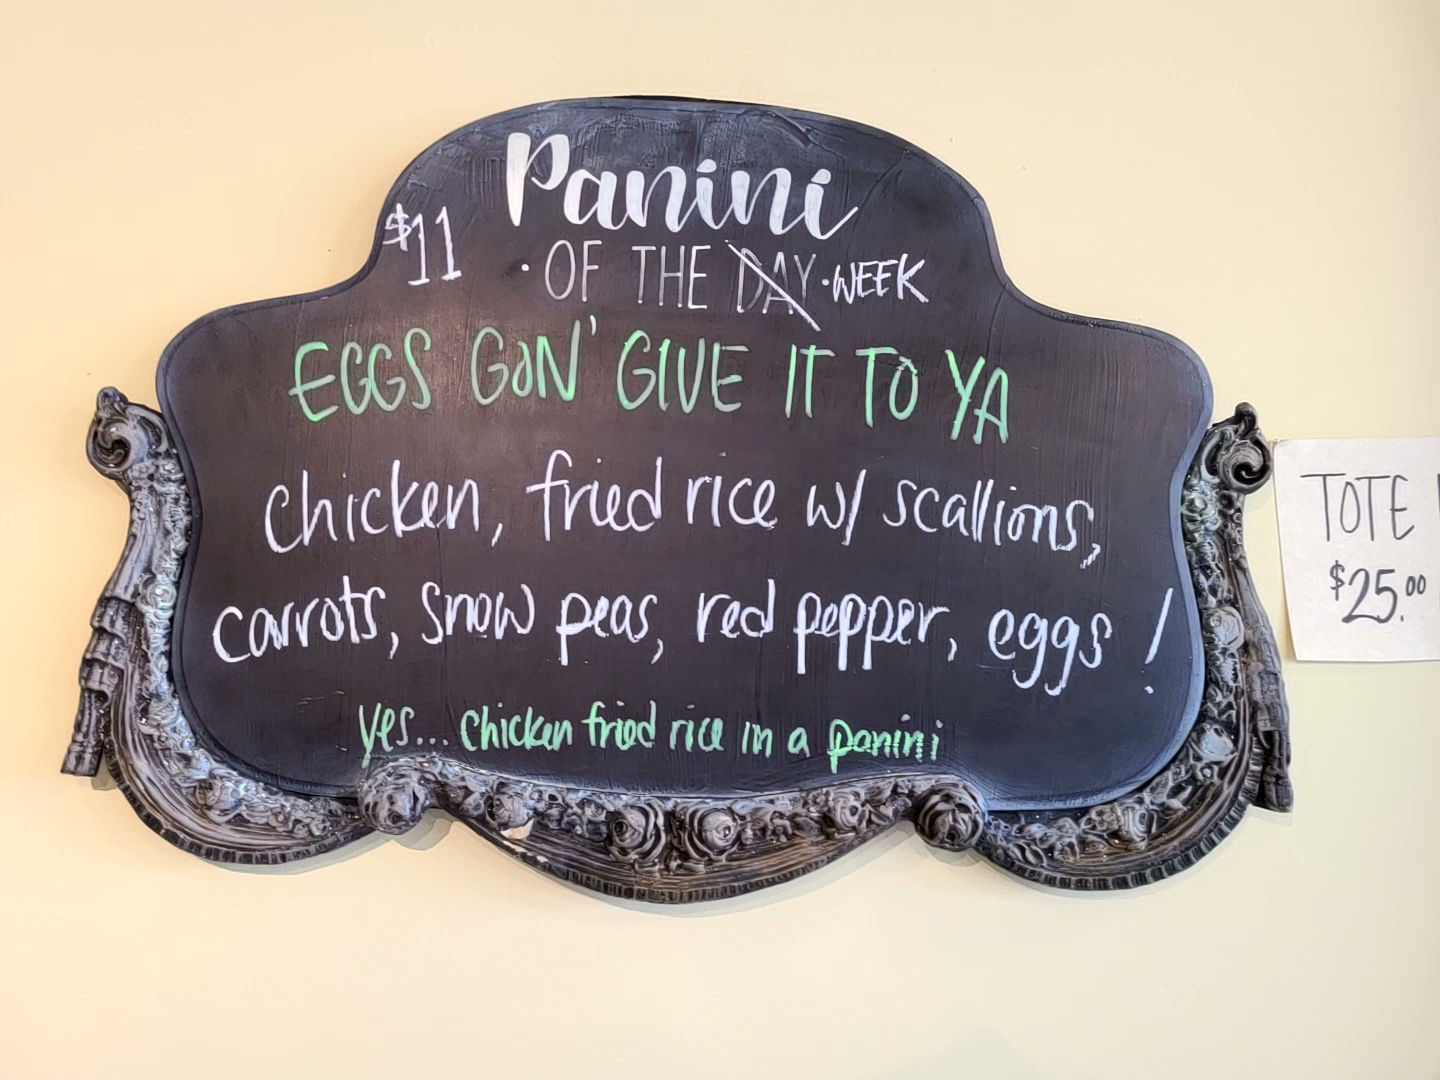 Panini
$11
· OF THE DAY · WEEK
EGGS GON' GIVE IT TO YA
chicken, fried rice w/ scallions,
carrots, snow peas, red pepper, eggs!
yes... chicken fried rice in a panini
TOTE
$25.00